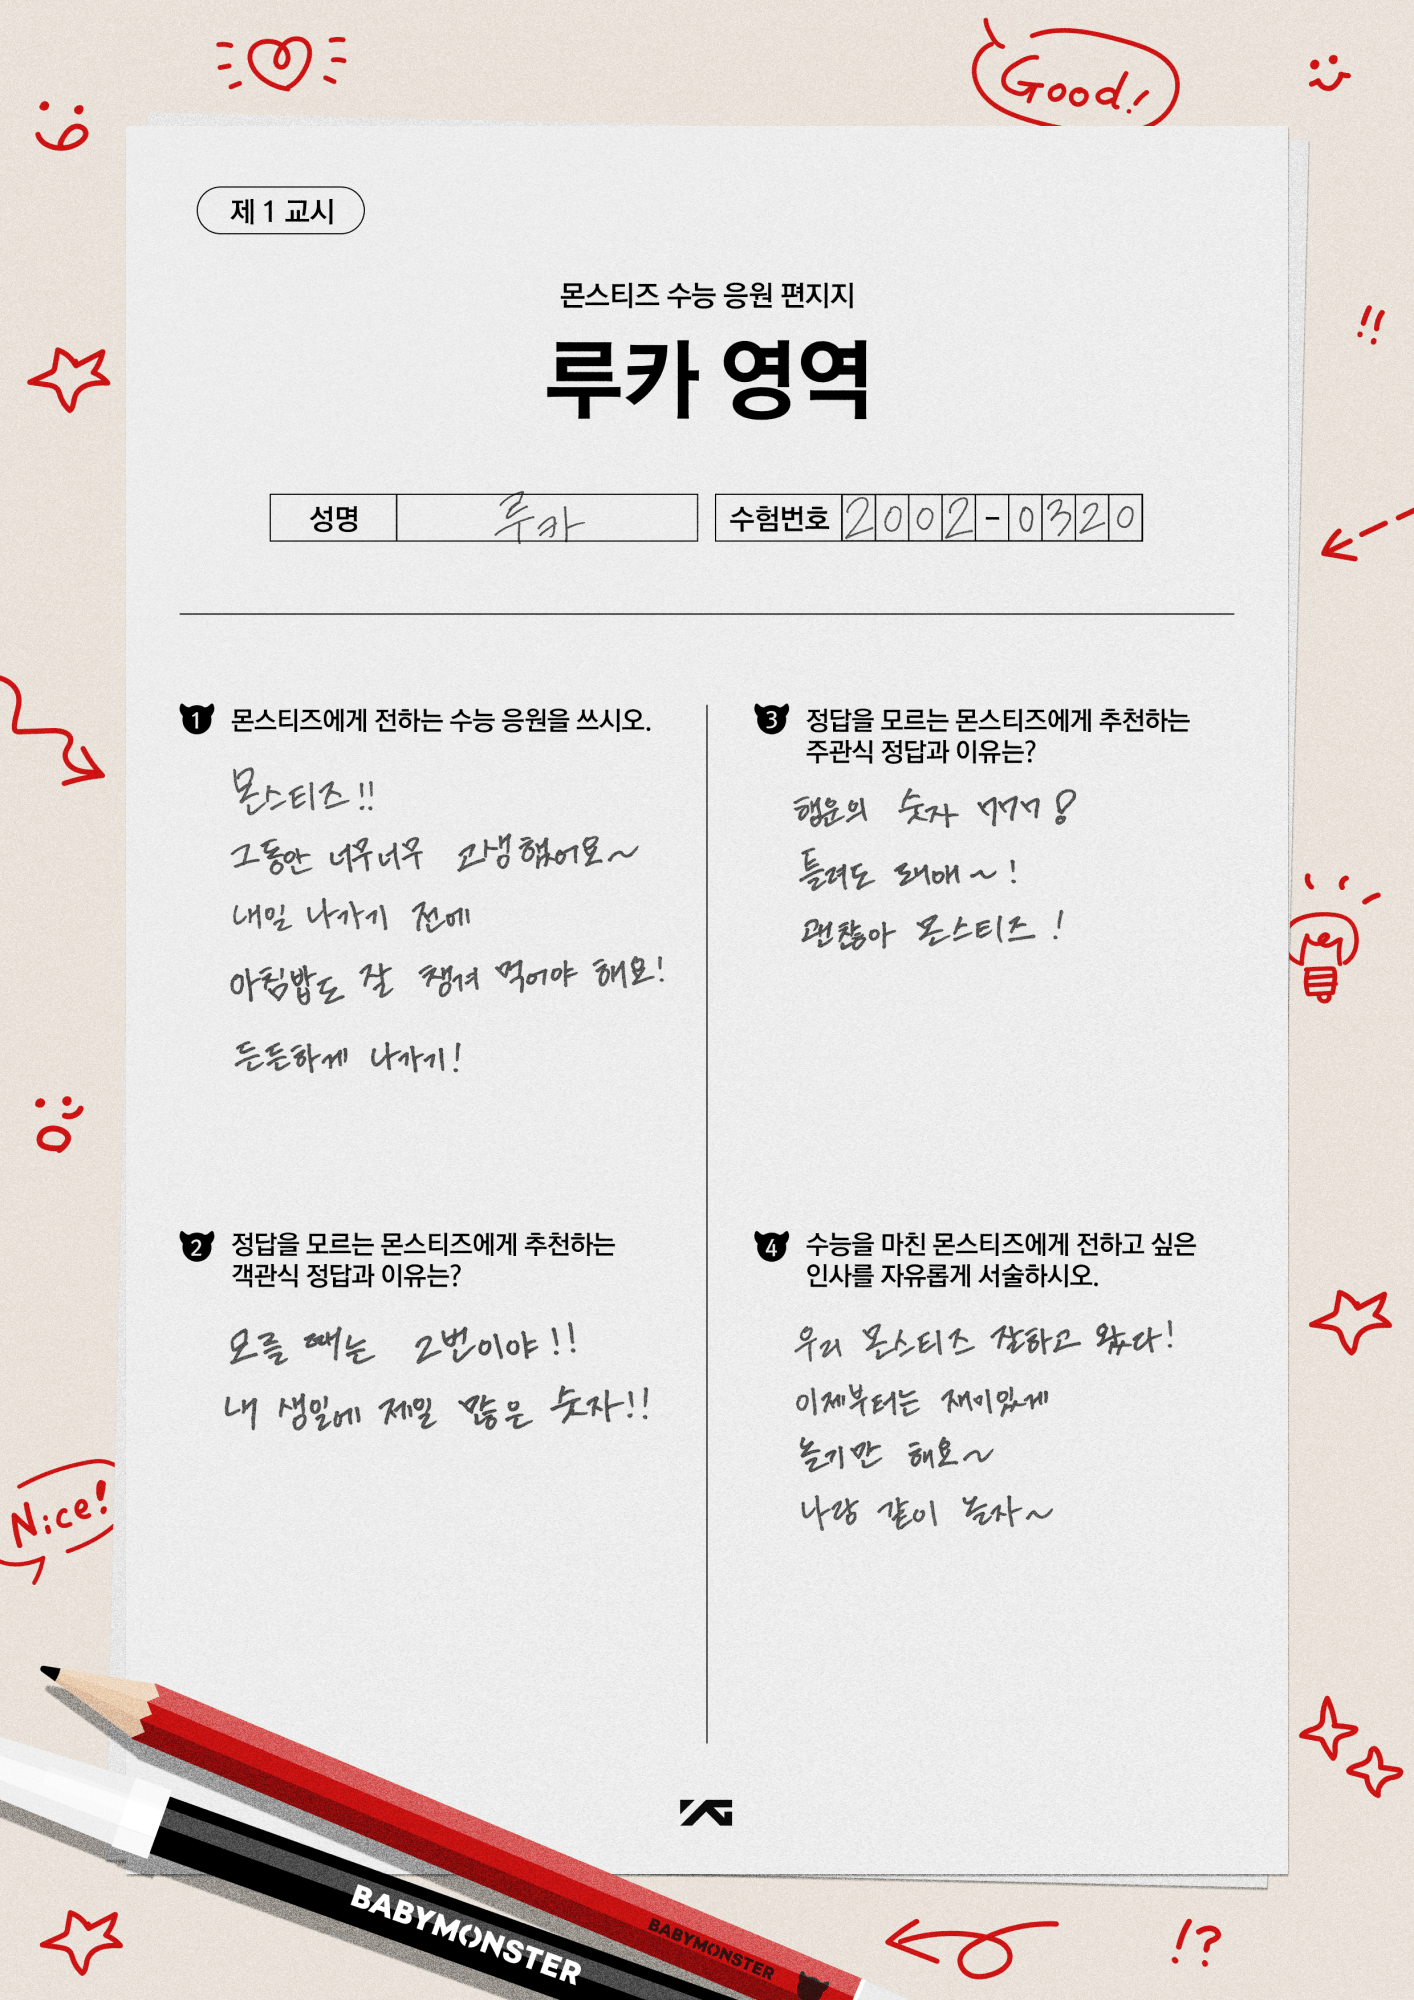 Good!
제 1 교시
몬스티즈 수능 응원 편지지
루카 영역
성명 루카 수험번호 2002-0320
1 몬스티즈에게 전하는 수능 응원을 쓰시오.
몬스티즈!!
그동안 너무너무 고생했어요~
내일 나가기 전에
아침밥도 잘 챙겨 먹어야 해요!
든든하게 나가기!
2 정답을 모르는 몬스티즈에게 추천하는
객관식 정답과 이유는?
모를 때는 2번이야!!
내 생일에 제일 많은 숫자!!
3 정답을 모르는 몬스티즈에게 추천하는
주관식 정답과 이유는?
행운의 숫자 777!
틀려도 돼애~!
괜찮아 몬스티즈!
4 수능을 마친 몬스티즈에게 전하고 싶은
인사를 자유롭게 서술하시오.
우리 몬스티즈 잘하고 왔다!
이제부터는 재미있게
놀기만 해요~
나랑 같이 놀자~
!!
Nice!
YG
BABYMONSTER
BABYMONSTER
!?